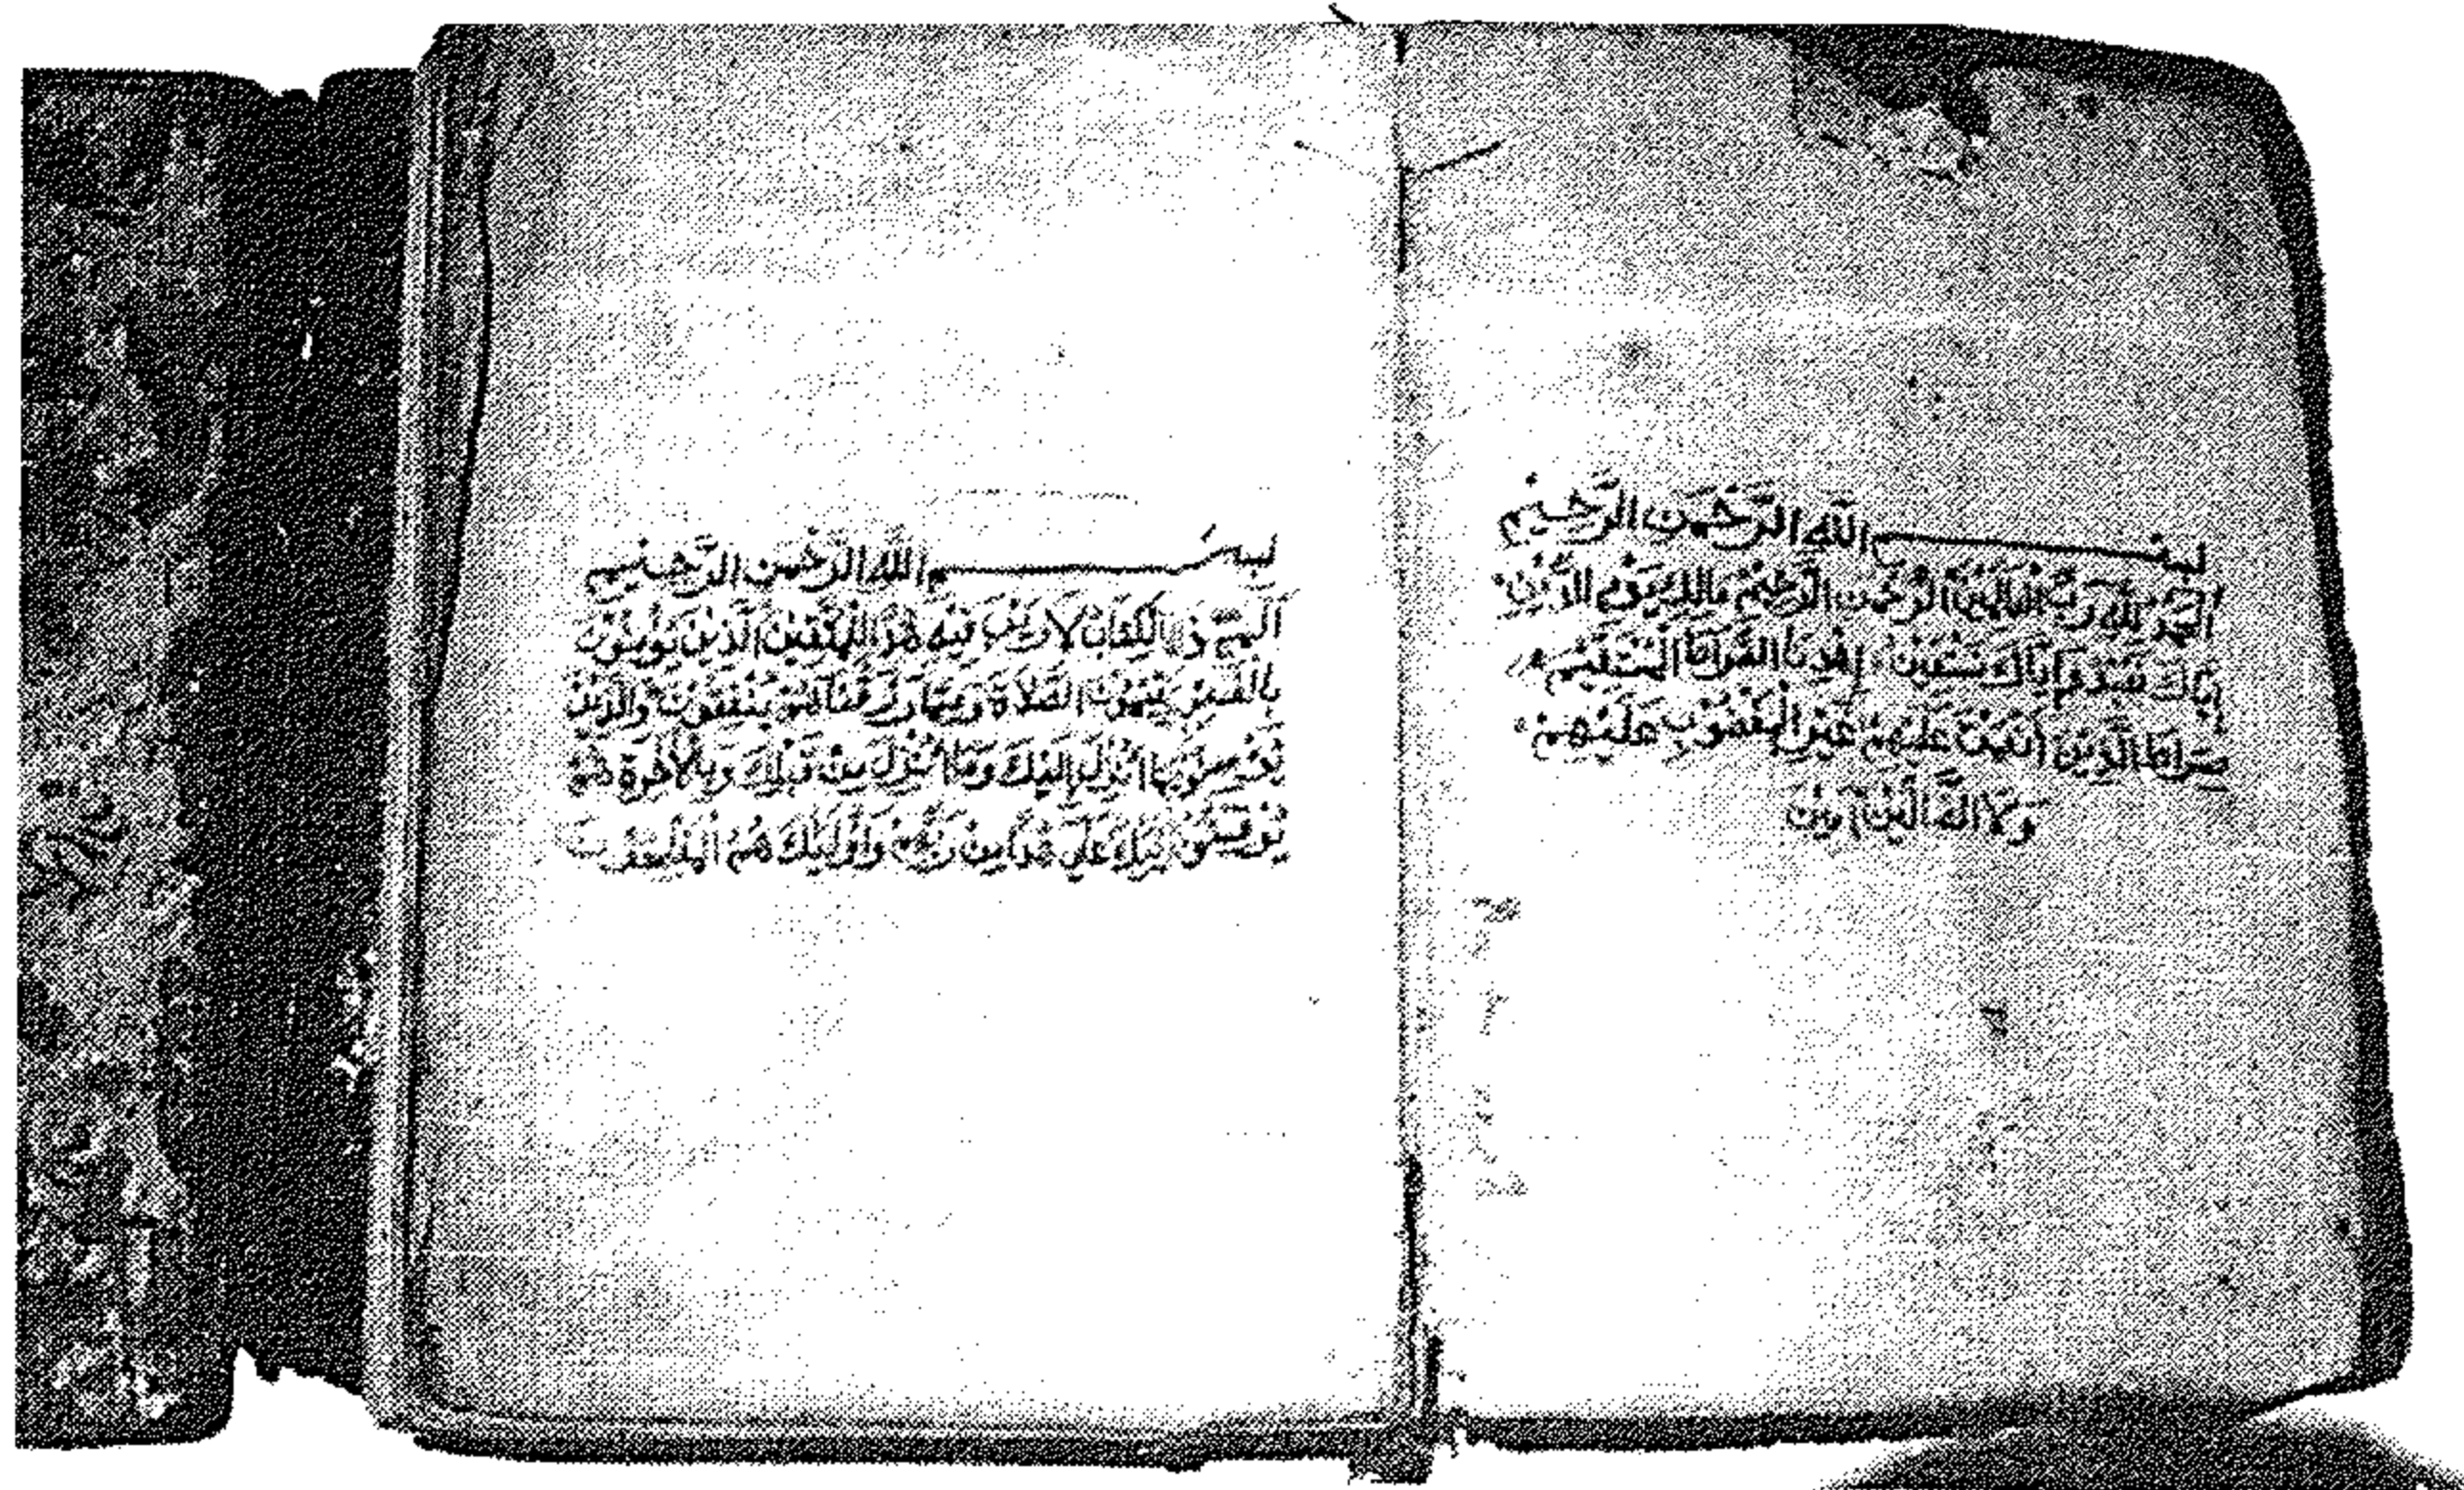 بسم الله الرحمن الرحيم
الحمد لله رب العالمين الرحمن الرحيم مالك يوم الدين
إياك نعبد وإياك نستعين اهدنا الصراط المستقيم
صراط الذين أنعمت عليهم غير المغضوب عليهم
ولا الضالين آمين
بسم الله الرحمن الرحيم
الم ذلك الكتاب لا ريب فيه هدى للمتقين الذين يؤمنون
بالغيب يقيمون الصلاة ومما رزقناهم ينفقون والذين
يؤمنون بما أنزل إليك وما أنزل من قبلك وبالآخرة هم
يوقنون أولئك على هدى من ربهم وأولئك هم المفلحون